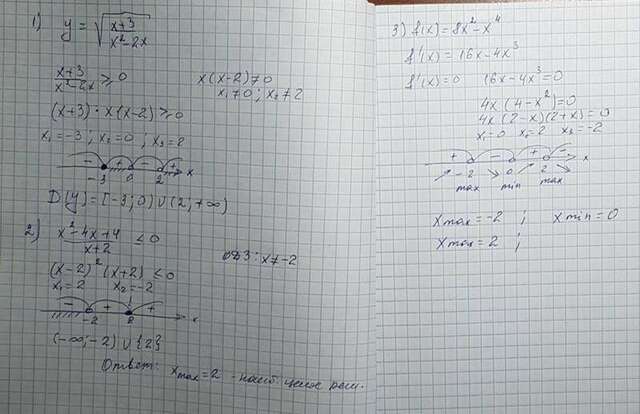 1) y = √((x+3)/(x²-2x))
(x+3)/(x²-2x) ≥ 0
x(x-2) ≠ 0
x₁≠0 ; x₂≠2
(x+3)·x(x-2) ≥ 0
x₁=-3 ; x₂=0 ; x₃=2
- + - +
-3 0 2 x
D(y) = [-3; 0) ∪ (2; +∞)
2) (x²-4x+4)/(x+2) ≤ 0
ОДЗ: x≠-2
(x-2)² (x+2) ≤ 0
x₁=2 x₂=-2
- + +
-2 2 x
(-∞; -2) ∪ {2}
Ответ: x max = 2 - наиб целое реш.
3) f(x) = 8x² - x⁴
f'(x) = 16x - 4x³
f'(x) = 0 16x - 4x³ = 0
4x (4 - x²) = 0
4x (2-x)(2+x) = 0
x₁=0 x₂=2 x₃=-2
+ - + -
↗ -2 ↘ 0 ↗ 2 ↘ x
max min max
x max = -2 ; x min = 0
x max = 2 ;